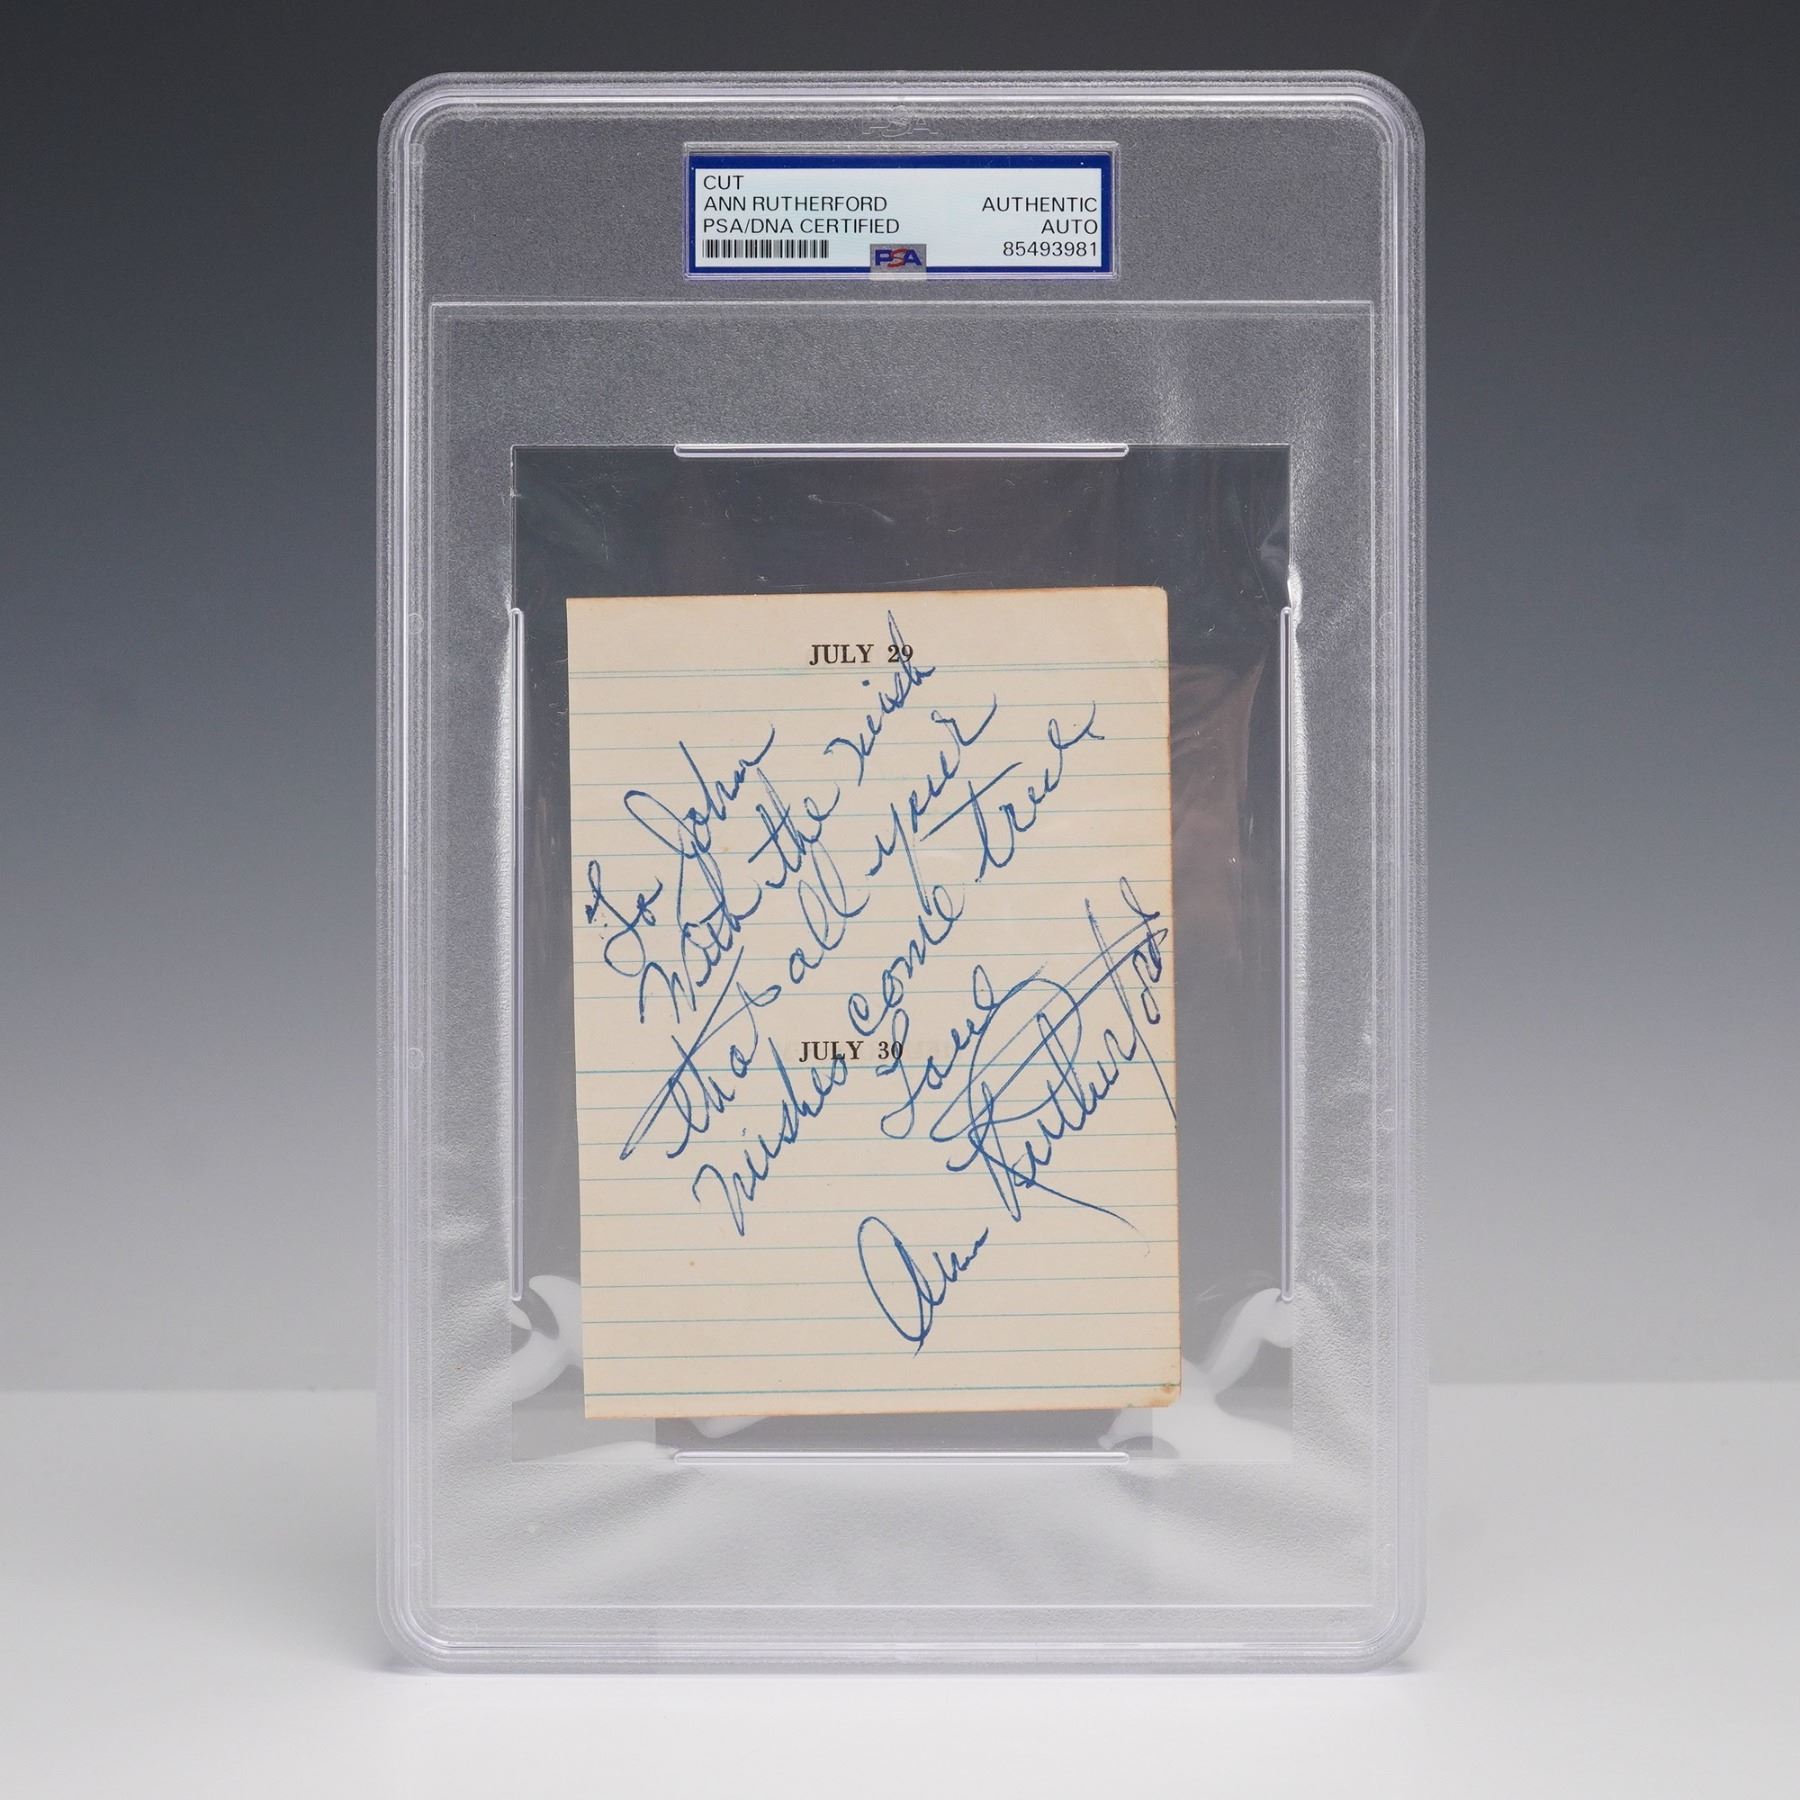 PSA
CUT
ANN RUTHERFORD
PSA/DNA CERTIFIED
AUTHENTIC
AUTO
85493981
PSA
JULY 29
To John
With the wish
that all your
wishes come true.
JULY 30
Love
Ann Rutherford